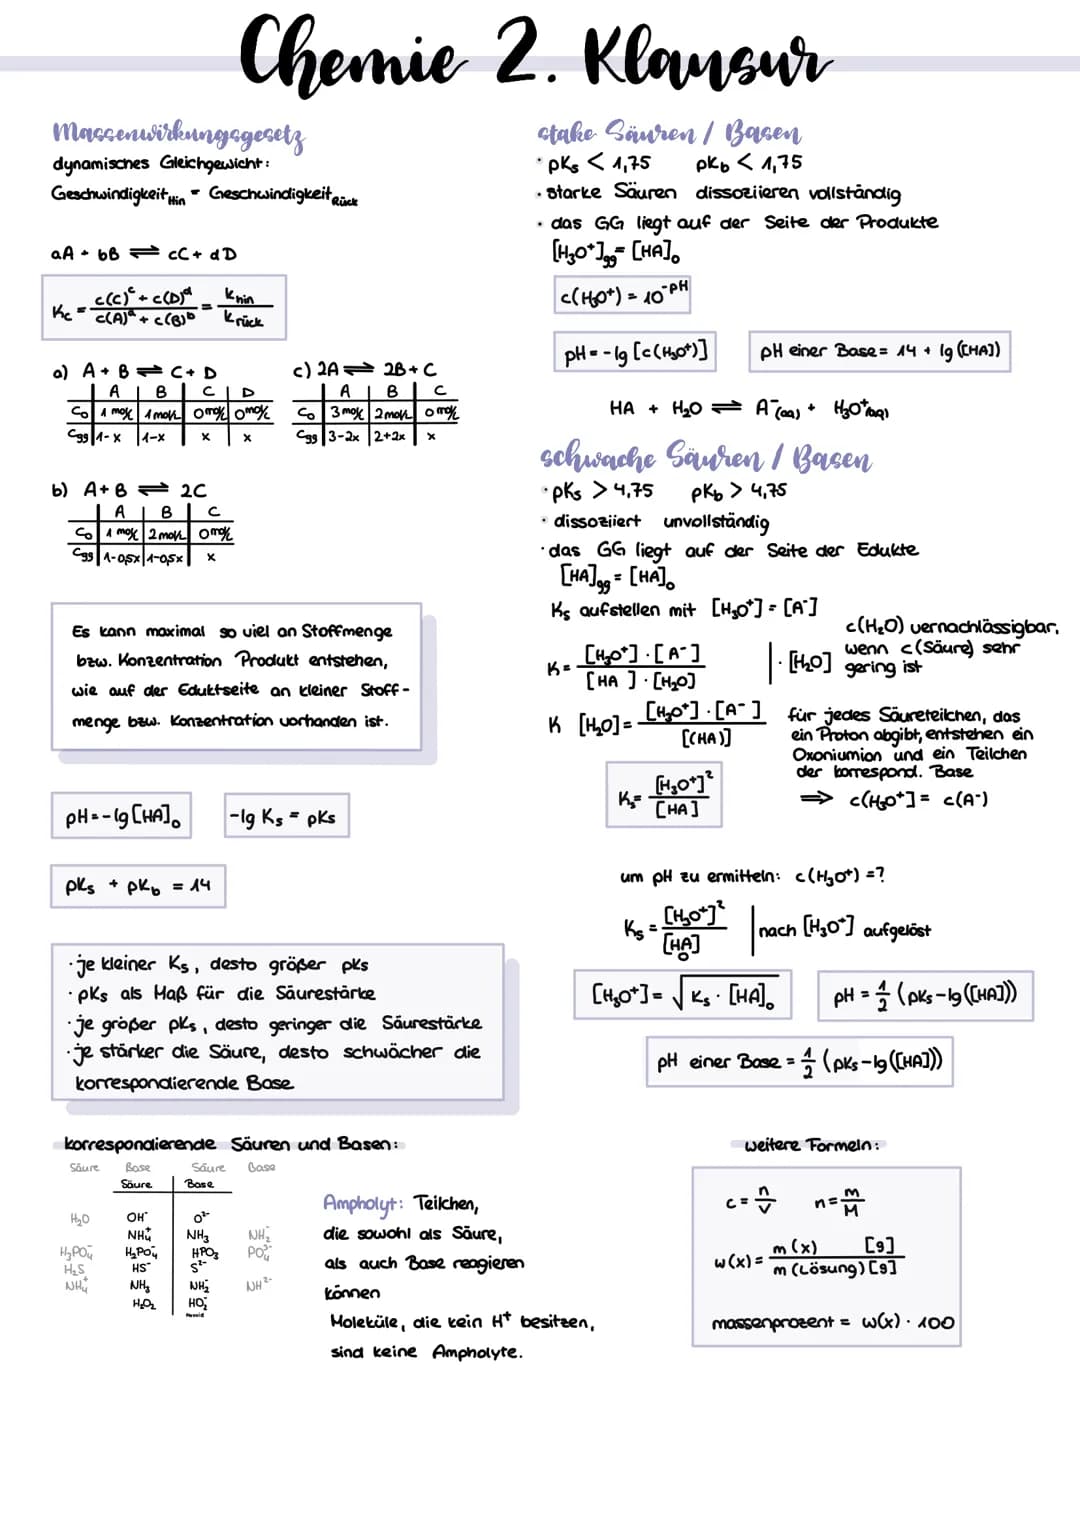 Chemie 2. Klausur
Massenwirkungsgesetz
dynamisches Gleichgewicht:
Geschwindigkeit Hin = Geschwindigkeit Rück
aA + bB ⇌ cC + dD
Kc = c(C)ᶜ + c(D)ᵈ / c(A)ᵃ + c(B)ᵇ = k hin / k rück
a) A + B ⇌ C + D
A | B | C | D
C₀ | 1 mol/L | 1 mol/L | 0 mol/L | 0 mol/L
Cgg | 1-x | 1-x | x | x
c) 2A ⇌ 2B + C
A | B | C
C₀ | 3 mol/L | 2 mol/L | 0 mol/L
Cgg | 3-2x | 2+2x | x
b) A + B ⇌ 2C
A | B | C
C₀ | 1 mol/L | 2 mol/L | 0 mol/L
Cgg | 1-0,5x | 1-0,5x | x
Es kann maximal so viel an Stoffmenge
bzw. Konzentration Produkt entstehen,
wie auf der Eduktseite an kleiner Stoff-
menge bzw. Konzentration vorhanden ist.
pH = -lg [HA]₀
-lg Ks = pKs
pKs + pKb = 14
· je kleiner Ks, desto größer pKs
· pKs als Maß für die Säurestärke
· je größer pKs, desto geringer die Säurestärke
· je stärker die Säure, desto schwächer die
korrespondierende Base
korrespondierende Säuren und Basen:
Säure Base Säure Base
Säure Base
H₂O OH⁻ O²⁻
NH₄⁺ NH₃ NH₂⁻
H₃PO₄⁻ H₂PO₄⁻ HPO₃ PO₄³⁻
H₂S HS⁻ S²⁻
NH₄⁺ NH₃ NH₂⁻ NH²⁻
H₂O₂ HO₂⁻
Ampholyt: Teilchen,
die sowohl als Säure,
als auch Base reagieren
können
Moleküle, die kein H⁺ besitzen,
sind keine Ampholyte.
stake Säuren / Basen
· pKs < 1,75 pKb < 1,75
· starke Säuren dissoziieren vollständig
· das GG liegt auf der Seite der Produkte
[H₃O⁺]gg = [HA]₀
c(H₃O⁺) = 10⁻ᵖᴴ
pH = -lg [c(H₃O⁺)]
pH einer Base = 14 + lg ([HA])
HA + H₂O ⇌ A⁻(aq) + H₃O⁺(aq)
schwache Säuren / Basen
· pKs > 4,75 pKb > 4,75
· dissoziiert unvollständig
· das GG liegt auf der Seite der Edukte
[HA]gg = [HA]₀
Ks aufstellen mit [H₃O⁺] = [A⁻]
K = [H₃O⁺] · [A⁻] / [HA] · [H₂O] | · [H₂O]
c(H₂O) vernachlässigbar,
wenn c(Säure) sehr
gering ist
K [H₂O] = [H₃O⁺] · [A⁻] / [(HA)]
für jedes Säureteilchen, das
ein Proton abgibt, entstehen ein
Oxoniumion und ein Teilchen
der korrespond. Base
⇒ c(H₃O⁺] = c(A⁻)
Ks = [H₃O⁺]² / [HA]
um pH zu ermitteln: c(H₃O⁺) = ?
Ks = [H₃O⁺]² / [HA]₀ | nach [H₃O⁺] aufgelöst
[H₃O⁺] = √Ks · [HA]₀
pH = 1/2 (pKs - lg([HA]))
pH einer Base = 1/2 (pKs - lg([HA]))
weitere Formeln:
c = n/V n = m/M
w(x) = m(x) [g] / m(Lösung) [g]
massenprozent = w(x) · 100